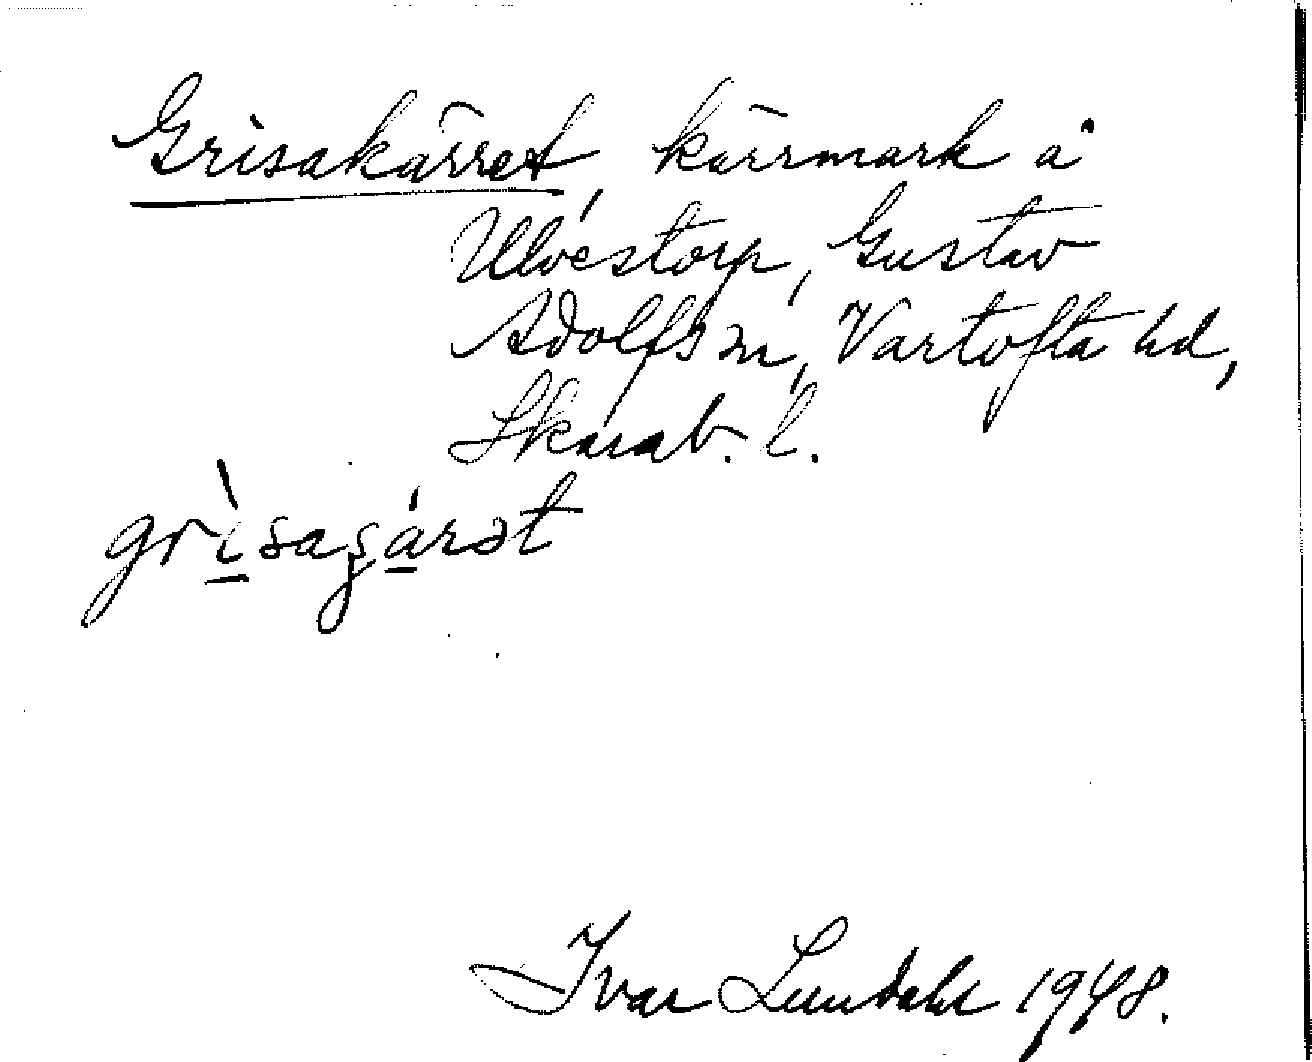 Grisakärret, kärrmark å
Ulvestorp, Gustav
Adolfs sn, Vartofta hd,
Skarab. l.
grìsaʂárət
Ivar Lundahl 1948.